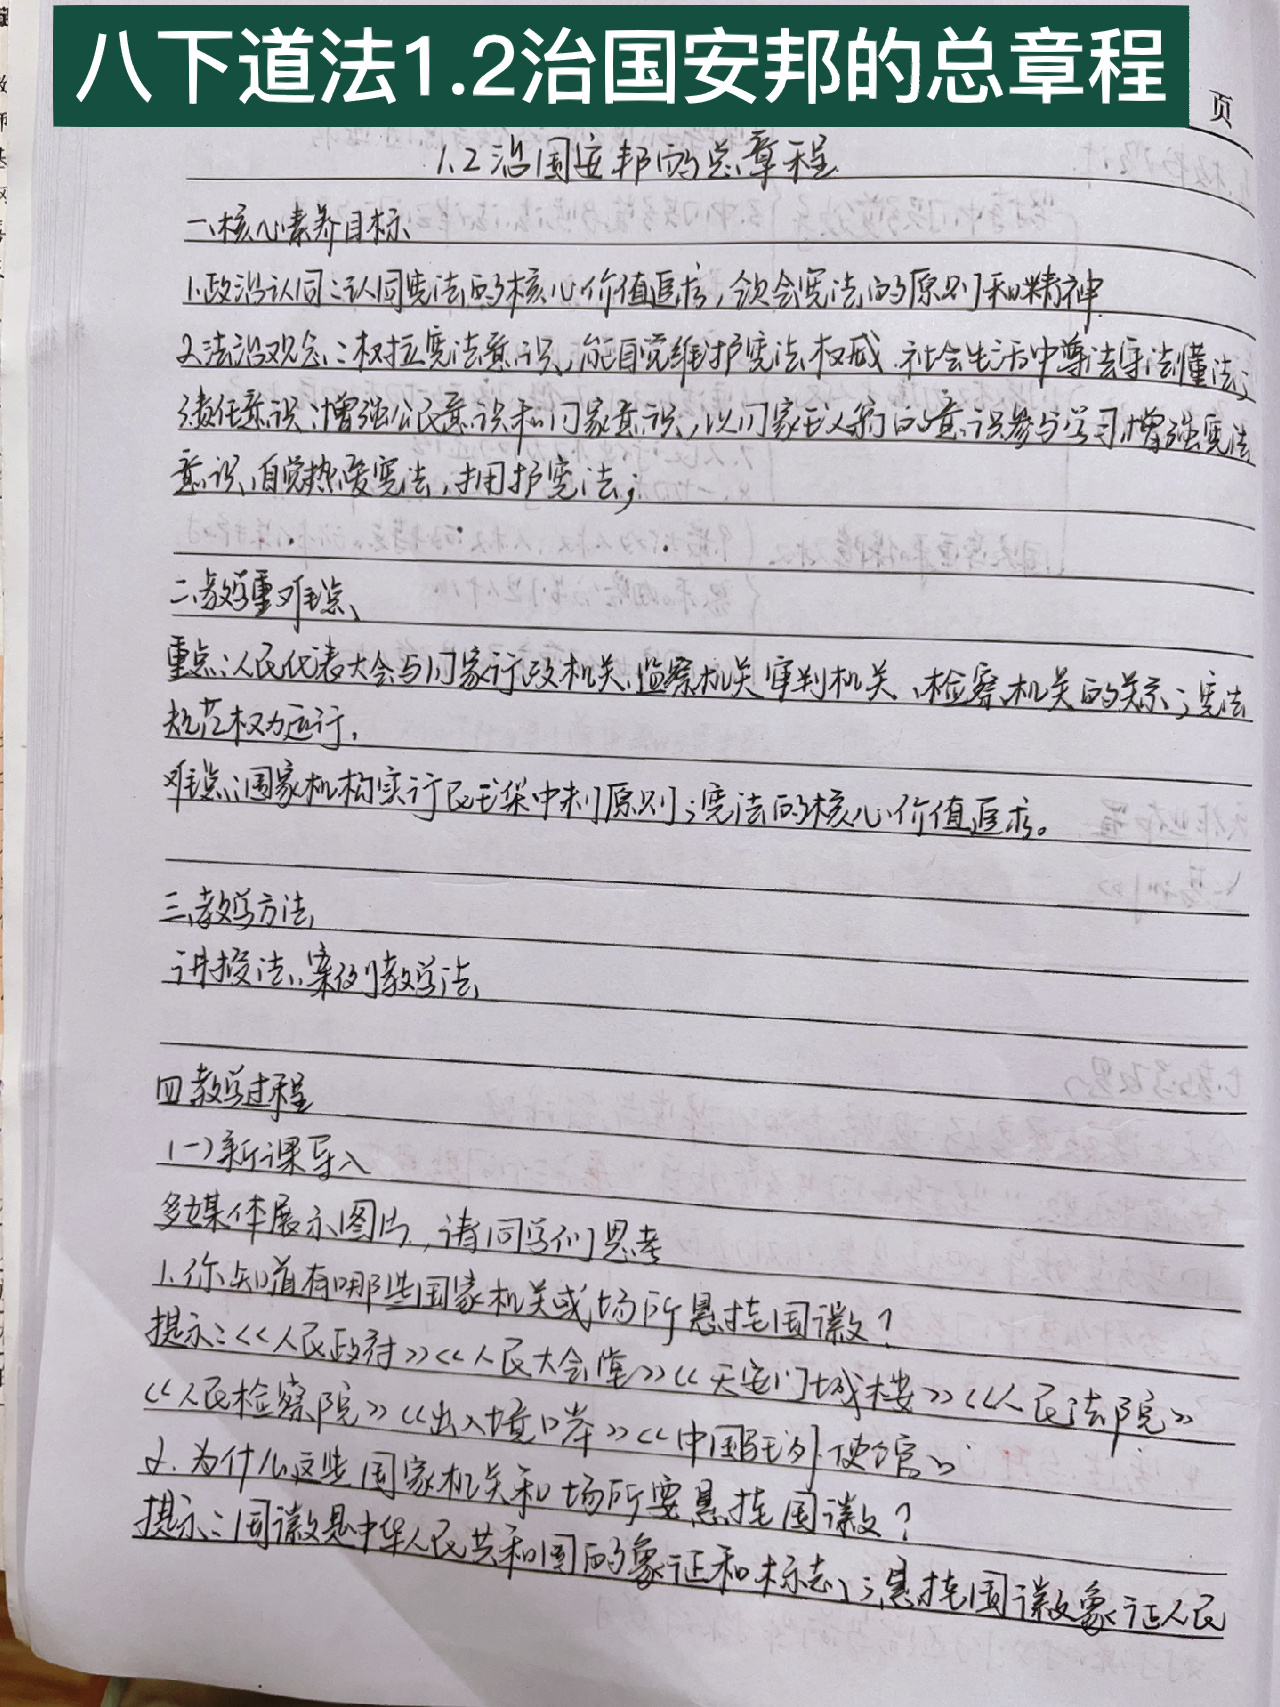 八下道法1.2治国安邦的总章程
页
1.2治国安邦的总章程
一、核心素养目标
1.政治认同:认同宪法的核心价值追求,领会宪法的原则和精神
2.法治观念:树立宪法意识,能自觉维护宪法权威.社会生活中尊法学法懂法;
责任意识:增强公民意识和国家意识,以国家主人翁的意识参与学习增强宪法
意识、自觉热爱宪法,拥护宪法;
二、教学重难点、
重点:人民代表大会与国家行政机关、监察机关审判机关、检察机关的关系;宪法
规范权力运行.
难点:国家机构实行民主集中制原则;宪法的核心价值追求。
三、教学方法
讲授法、案例教学法
四教学过程
(一)新课导入
多媒体展示图片,请同学们思考
1.你知道有哪些国家机关或场所悬挂国徽?
提示:《人民政府》《人民大会堂》《天安门城楼》《人民法院》
《人民检察院》《出入境口岸》《中国驻外使馆》
2.为什么这些国家机关和场所要悬挂国徽?
提示:国徽是中华人民共和国的象征和标志;悬挂国徽象征人民